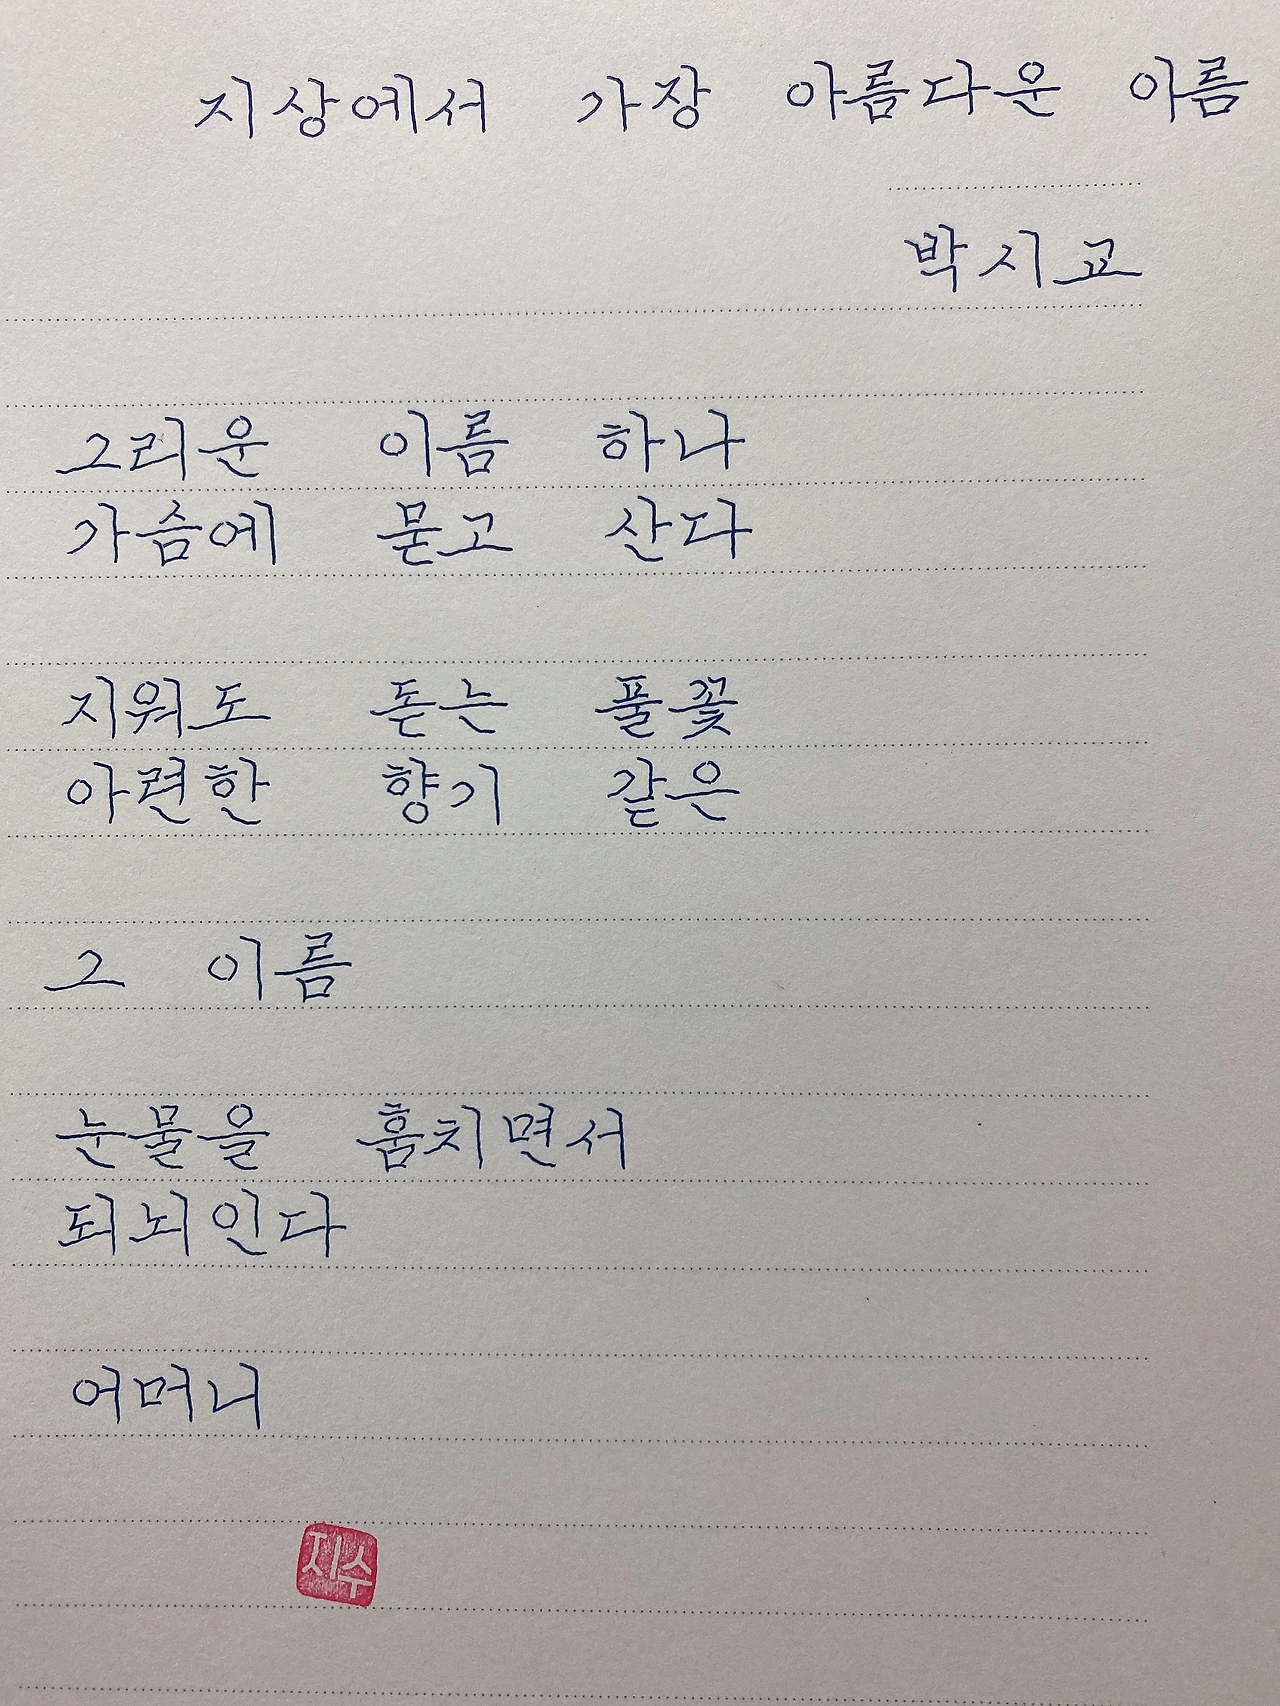 지상에서 가장 아름다운 이름
박시교
그리운 이름 하나
가슴에 묻고 산다
지워도 돋는 풀꽃
아련한 향기 같은
그 이름
눈물을 훔치면서
되뇌인다
어머니
지수